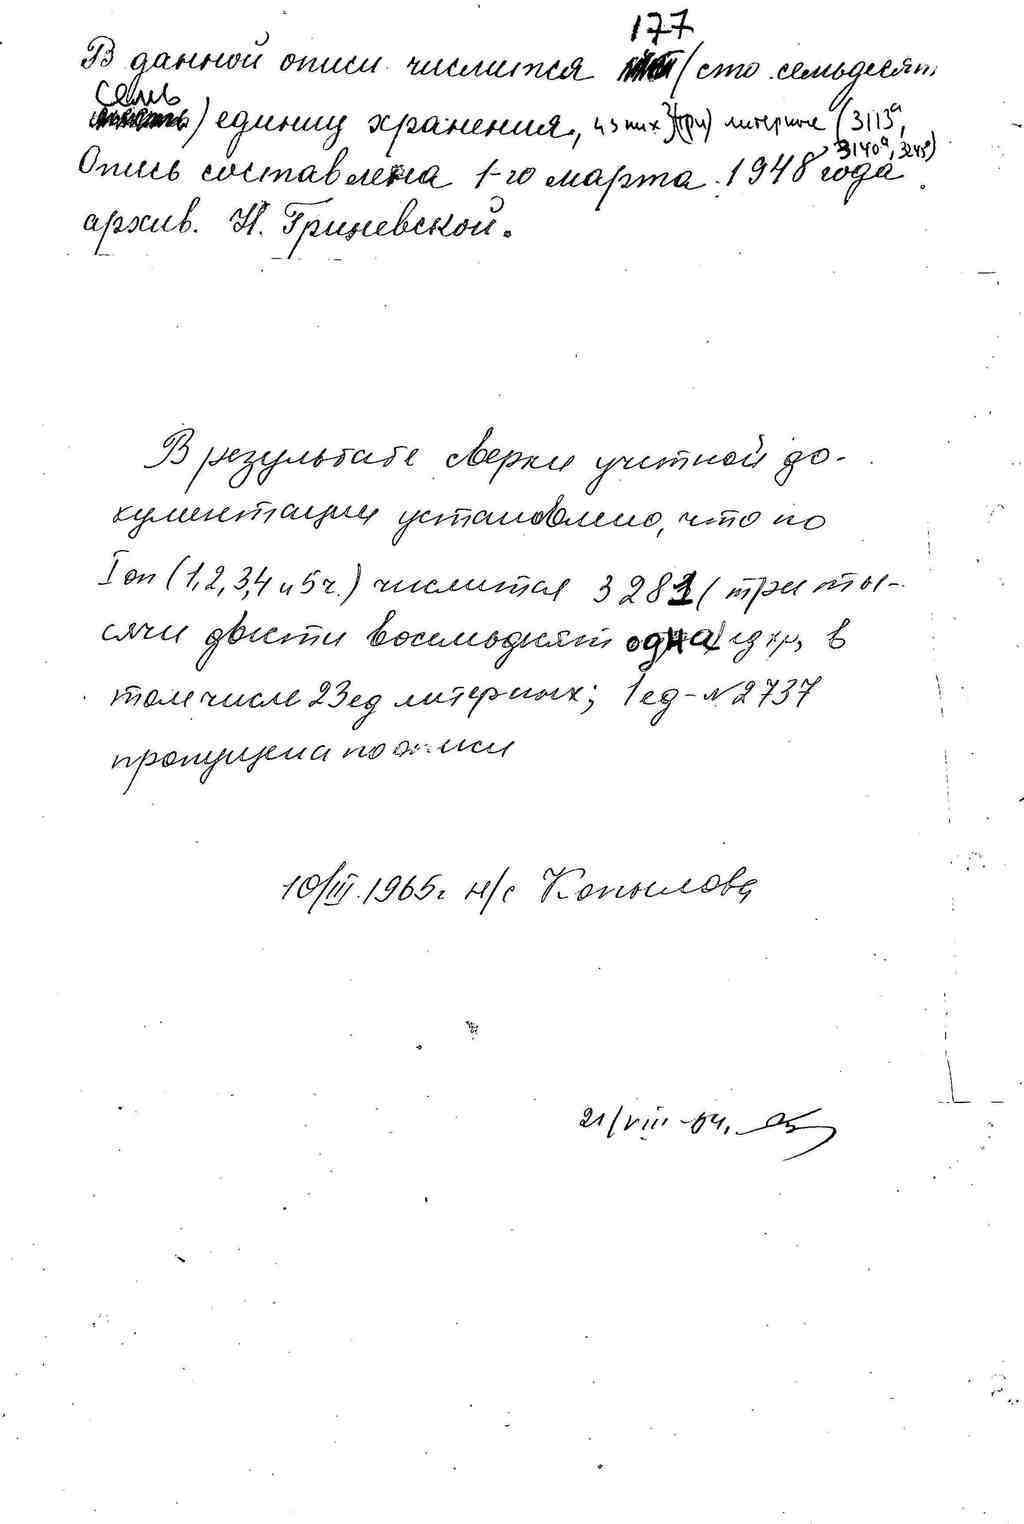 177
В данной описи числится (сто семьдесят
семь
) единиц хранения, из них 3(три) литерные (3113а,
3140а, 3245а)
Опись составлена 1-го марта 1948 года
архив. Н. Гриневской.
В результате сверки учетной до-
кументации установлено, что по
I оп (1,2,3,4 и 5 ч.) числится 3281 (три ты-
сячи двести восемьдесят одна) ед хр, в
том числе 23 ед литерных; 1 ед - № 2737
пропущена по описи
10/III.1965г. н/с Копылова
21/VIII-64.